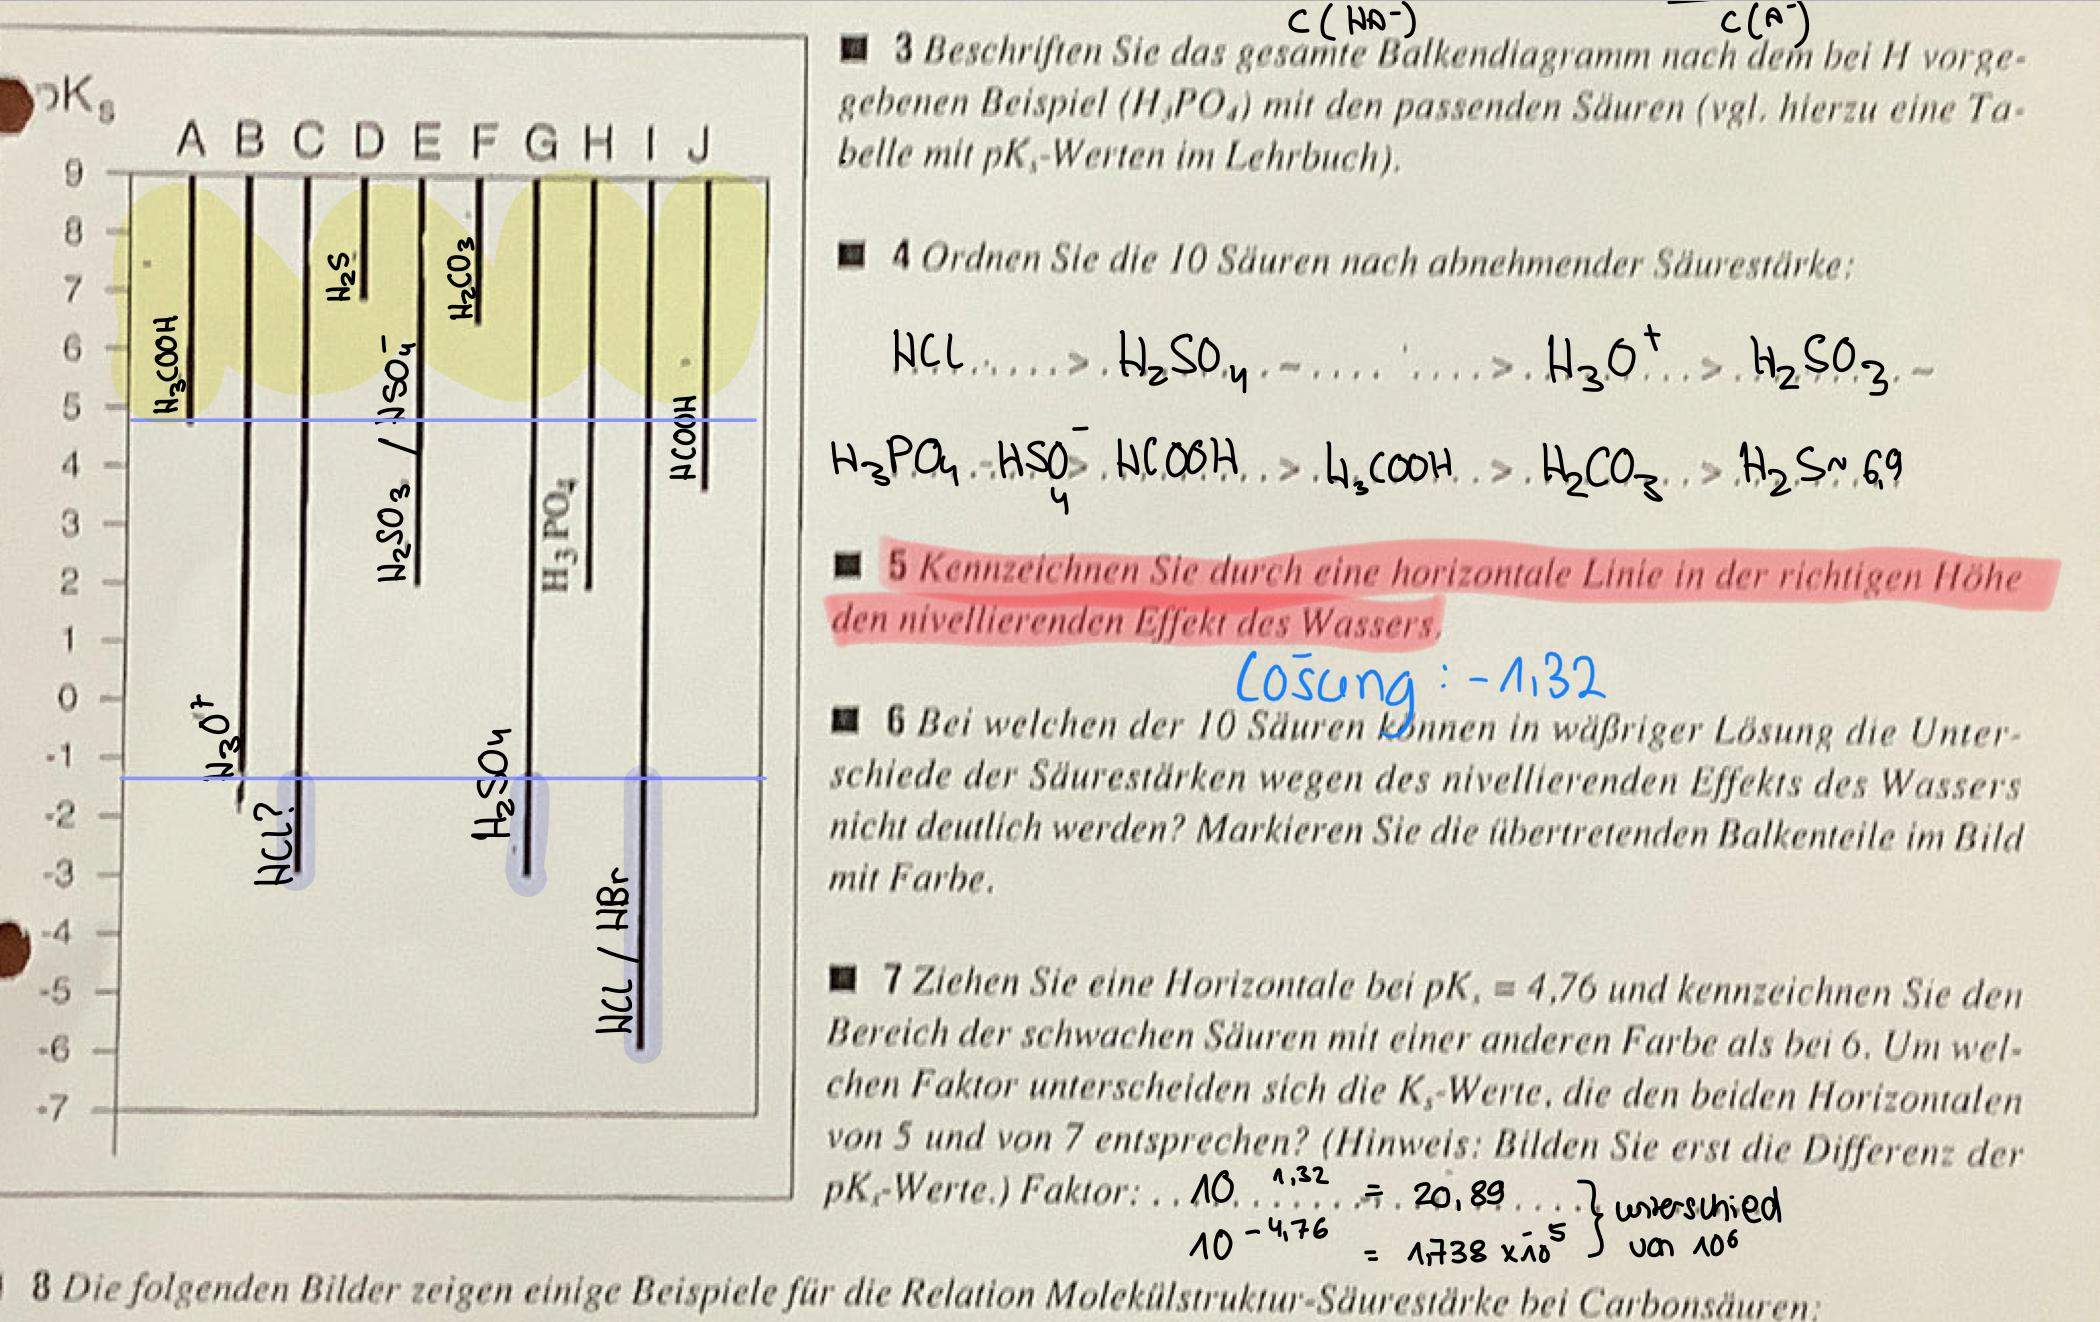 C(HA⁻) C(A⁻)
pKs
A B C D E F G H I J
9
8
7
6
5
4
3
2
1
0
-1
-2
-3
-4
-5
-6
-7
H₃COOH
H₃O⁺
HCL?
H₂S
H₂SO₃ / HSO₄⁻
H₂CO₃
H₂SO₄
H₃PO₄
HCL / HBr
HCOOH
■ 3 Beschriften Sie das gesamte Balkendiagramm nach dem bei H vorge-
gebenen Beispiel (H₃PO₄) mit den passenden Säuren (vgl. hierzu eine Ta-
belle mit pKs-Werten im Lehrbuch).
■ 4 Ordnen Sie die 10 Säuren nach abnehmender Säurestärke:
HCL > H₂SO₄ ~ > H₃O⁺ > H₂SO₃ ~
H₃PO₄ - HSO₄⁻ > HCOOH > H₃COOH > H₂CO₃ > H₂S ~ 6,9
■ 5 Kennzeichnen Sie durch eine horizontale Linie in der richtigen Höhe
den nivellierenden Effekt des Wassers.
Lösung: -1,32
■ 6 Bei welchen der 10 Säuren können in wäßriger Lösung die Unter-
schiede der Säurestärken wegen des nivellierenden Effekts des Wassers
nicht deutlich werden? Markieren Sie die übertretenden Balkenteile im Bild
mit Farbe.
■ 7 Ziehen Sie eine Horizontale bei pKs = 4,76 und kennzeichnen Sie den
Bereich der schwachen Säuren mit einer anderen Farbe als bei 6. Um wel-
chen Faktor unterscheiden sich die Ks-Werte, die den beiden Horizontalen
von 5 und von 7 entsprechen? (Hinweis: Bilden Sie erst die Differenz der
pKs-Werte.) Faktor: 10^1,32 = 20,89 } unterschied
10^-4,76 = 1,738 x 10^-5 } von 10⁶
8 Die folgenden Bilder zeigen einige Beispiele für die Relation Molekülstruktur-Säurestärke bei Carbonsäuren: